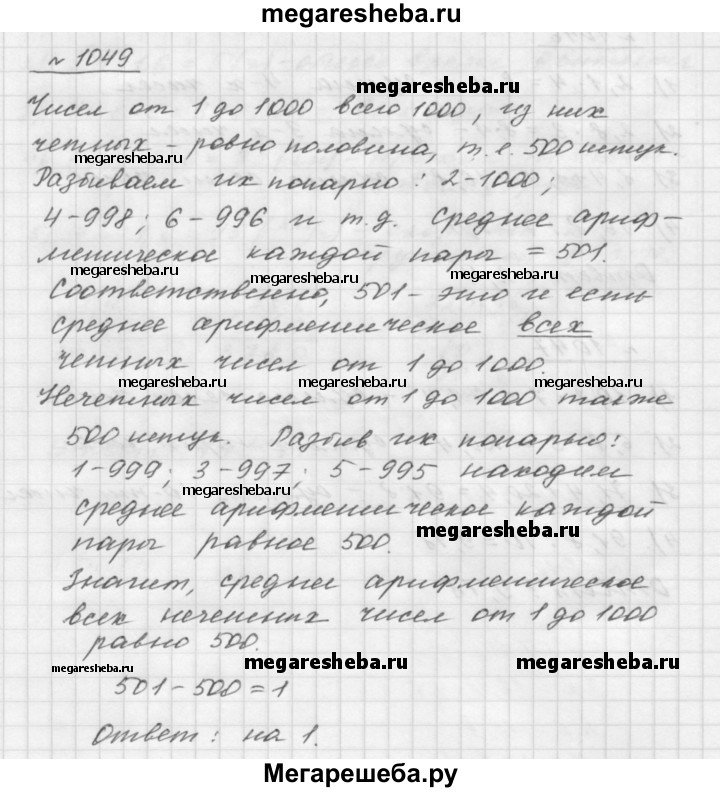 megaresheba.ru
№ 1049
megaresheba.ru
Чисел от 1 до 1000 всего 1000, из них
четных - ровно половина, т.е. 500 штук.
megaresheba.ru
megaresheba.ru
Разбиваем их попарно: 2-1000;
4-998; 6-996 и т.д. Среднее ариф-
метическое каждой пары = 501.
megaresheba.ru
megaresheba.ru
megaresheba.ru
Соответственно, 501 - это и есть
среднее арифметическое всех
четных чисел от 1 до 1000.
megaresheba.ru
megaresheba.ru
megaresheba.ru
Нечетных чисел от 1 до 1000 также
500 штук. Разбив их попарно:
1-999; 3-997; 5-995 находим
megaresheba.ru
среднее арифметическое каждой
megaresheba.ru
пары равное 500.
Значит, среднее арифметическое
всех нечетних чисел от 1 до 1000
равно 500.
megaresheba.ru
megaresheba.ru
megaresheba.ru
501-500=1
Ответ: на 1.
Мегарешеба.ру